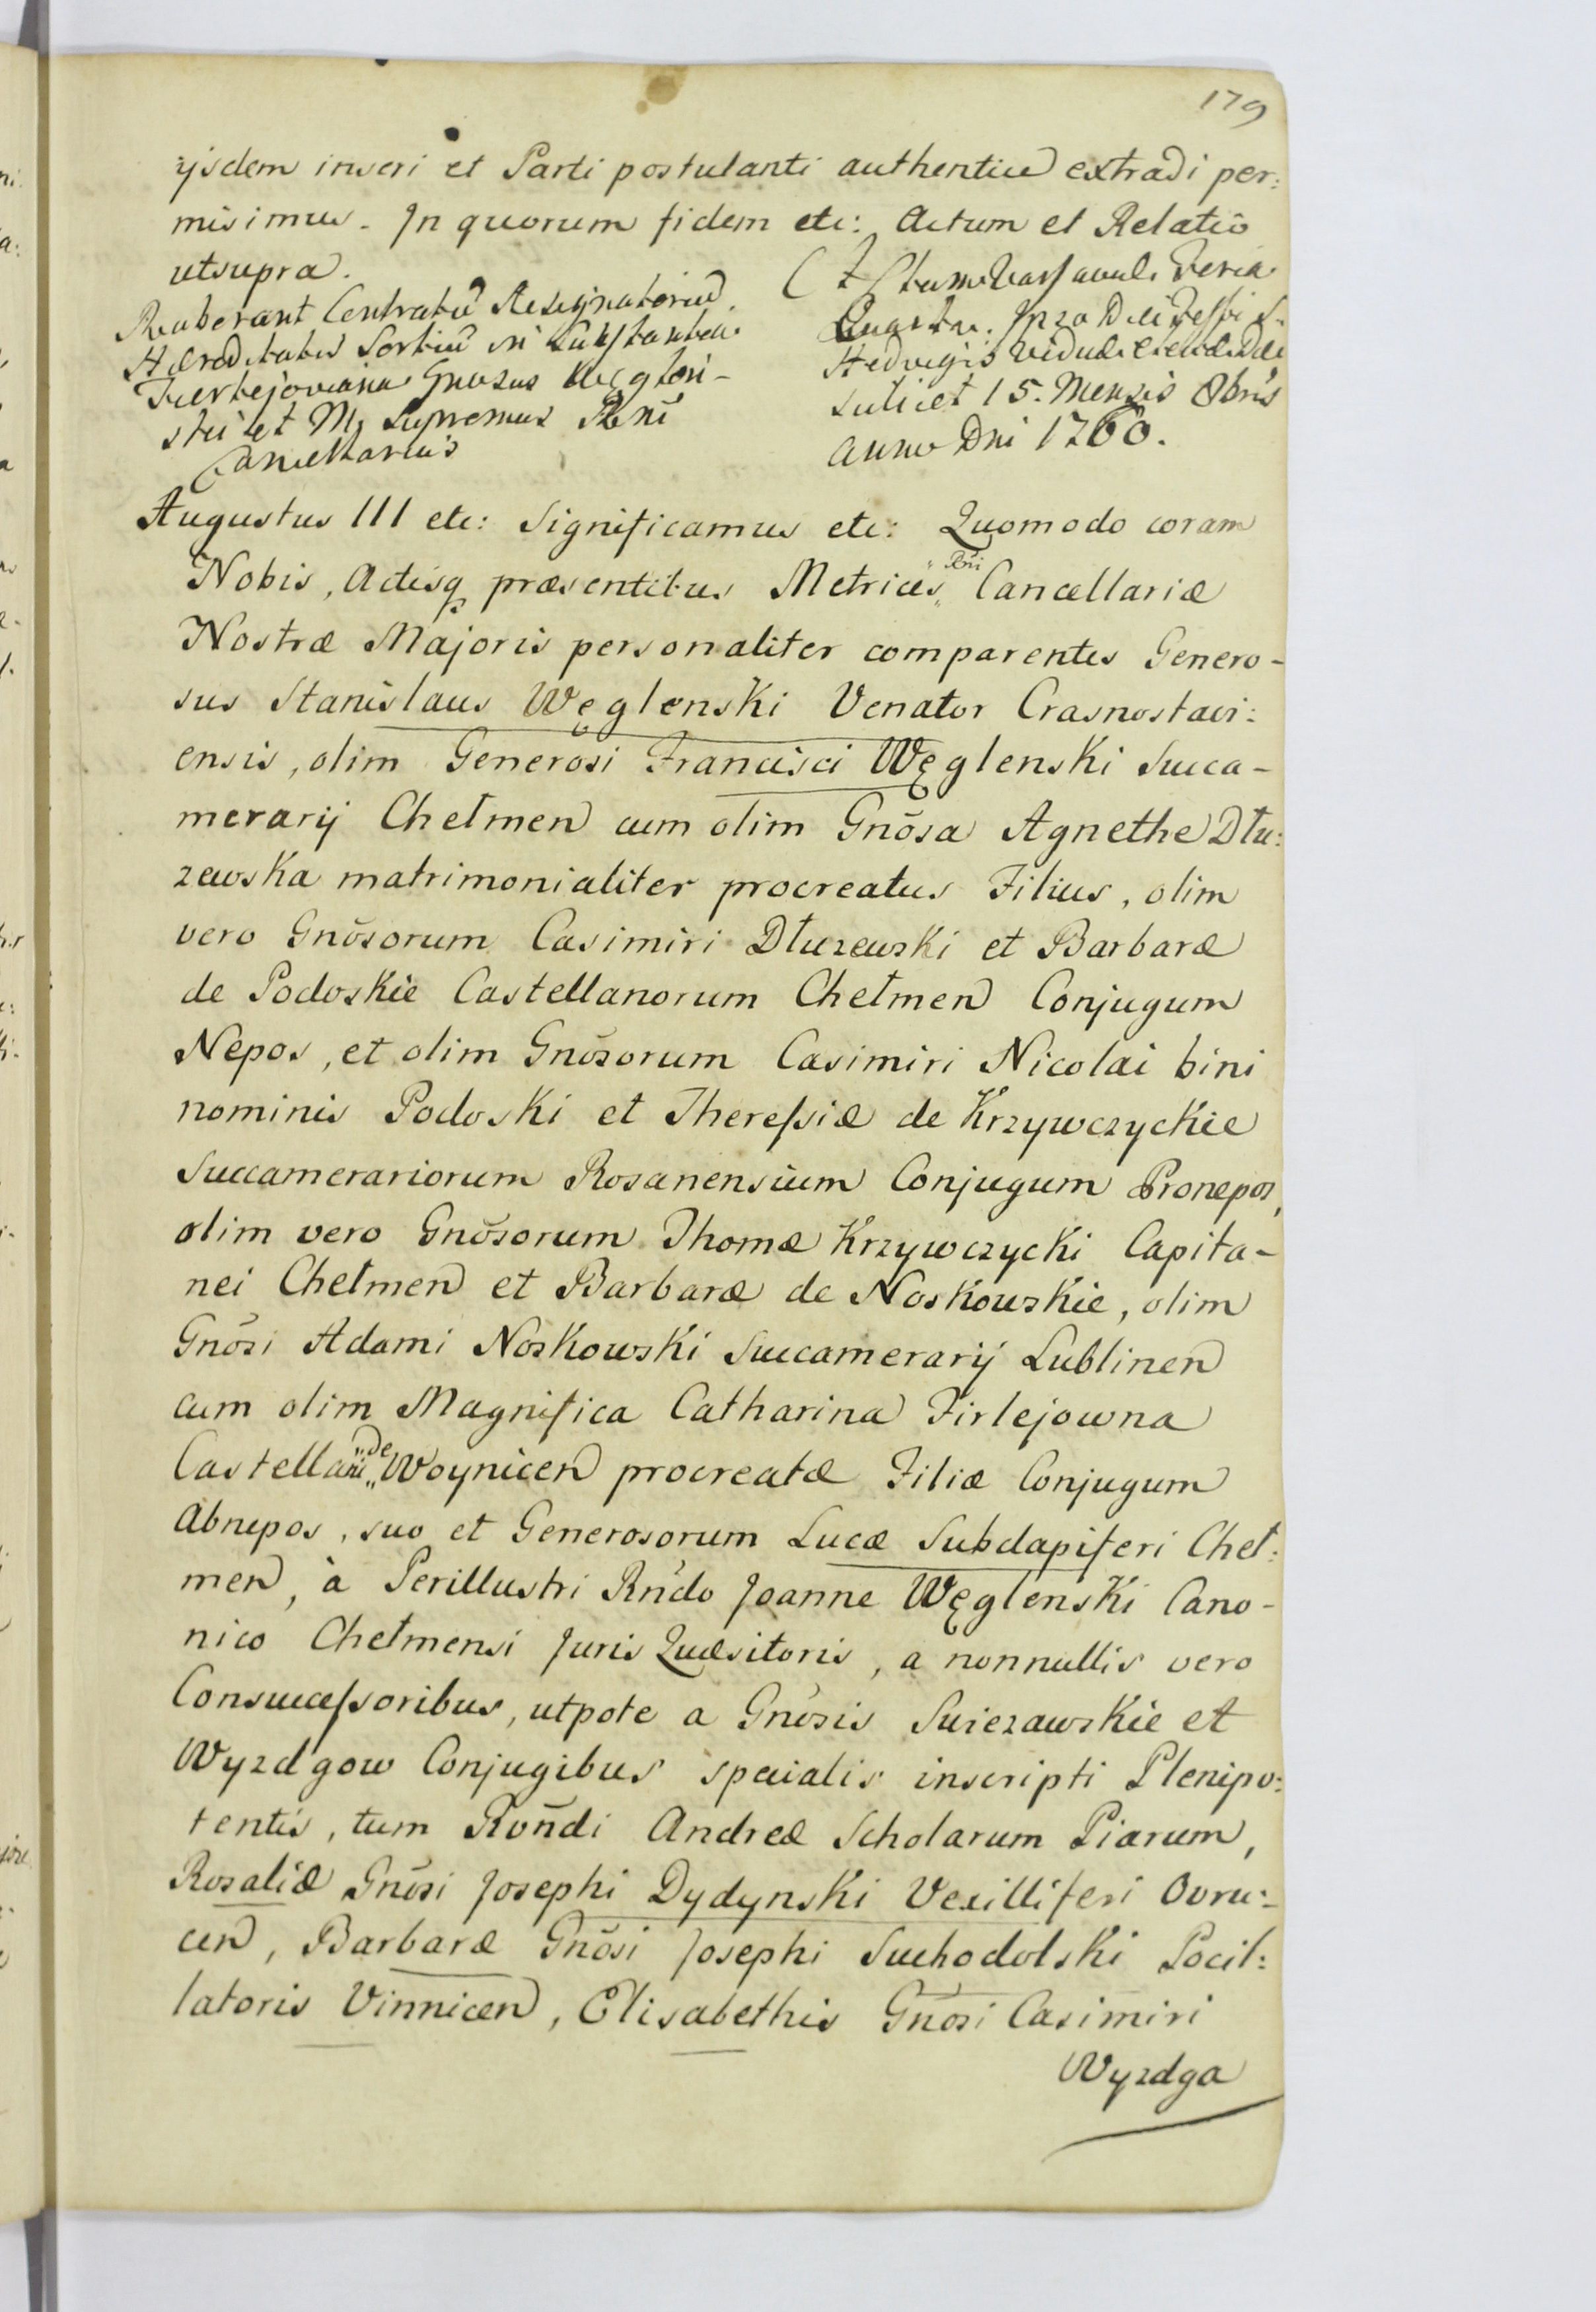 179
ijsdem inseri et Parti postulanti authentice extradi per:
misimus. In quorum fidem etc: Actum et Relatio
utsupra.
Roborant Contractũ Resignatoriũ
Hæreditatis Sortiũ in Substantia
Firlejoviana Gnosus Węglen-
ski et M. Supremus Rni
Cancellarius
Actum Varsaviæ Feria
Quarta. Ipso Die Festi S.
Hedvigis Viduæ Electæ Dei
scilicet 15. Mensis 8bris
anno Dni 1760.
Augustus III etc: Significamus etc: Quomodo coram
Nobis, Actisq præsentibus Metrices „Rni„ Cancellariæ
Nostræ Majoris personaliter comparentes Genero-
sus Stanislaus Węglenski Venator Crasnostavi:
ensis, olim Generosi Francisci Węglenski Succa-
merarij Chełmen cum olim Gnõsa Agnethe Dłu:
zewska matrimonialiter procreatus Filius, olim
vero Gnõsorum Casimiri Dłuzewski et Barbaræ
de Podoskie Castellanorum Chełmen Conjugum
Nepos, et olim Gnõsorum Casimiri Nicolai bini
nominis Podoski et Theressiæ de Krzywczyckie
Succamerariorum Rosanensium Conjugum Pronepos,
olim vero Gnõsorum Thomæ Krzywczycki Capita-
nei Chełmen et Barbaræ de Noskowskie, olim
Gnõsi Adami Noskowski Succamerarij Lublinen
cum olim Magnifica Catharina Firlejowna
Castellani „De„ Woynicen procreatæ Filiæ Conjugum
Abnepos, suo et Generosorum Lucæ Subdapiferi Cheł:
men, à Perillustri Rndo Joanne Węglenski Cano-
nico Chełmensi Juris Quæsitoris, a nonnullis vero
Consuccessoribus, utpote a Gnõsis Swiezawskie et
Wyzdgow Conjugibus specialis inscripti Plenipo:
tentis, tum Rondi Andreæ Scholarum Piarum,
Rosaliæ Gnõsi Josephi Dydynski Vexilliferi Ovru:
cen, Barbaræ Gnõsi Josephi Suchodolski Pocil:
latoris Vinnicen, Elisabethis Gnõsi Casimiri
Wyzdga